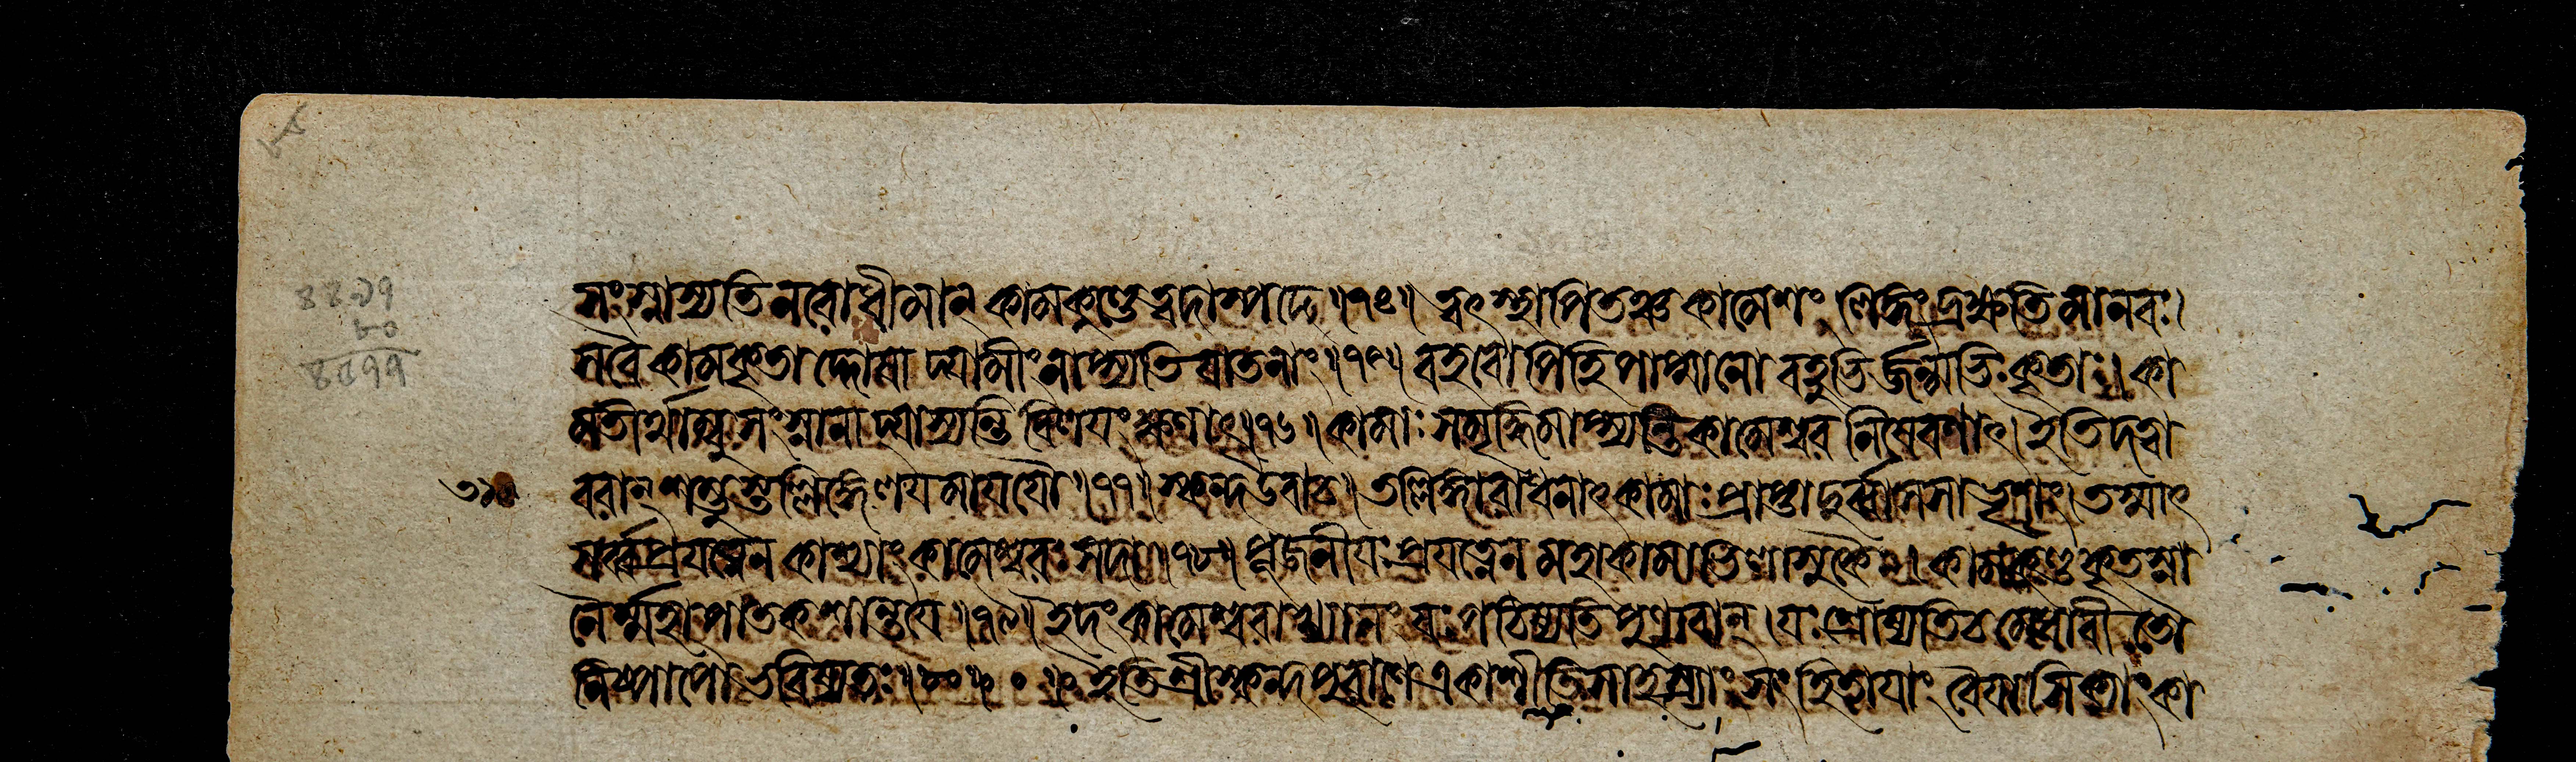 ৪৪৩৭
৮০
৪৫৭৭
সংস্নাস্যতি নরোধীমান্ কামকুণ্ডে ত্বদাস্পদে ॥৭৪॥ ত্বৎস্থাপিতঞ্চ কামেশং লিঙ্গং দ্রক্ষ্যতি মানবঃ।
স বৈ কামকৃতাদ্দোষাদ্যামীং নাপ্স্যতি যাতনাং ॥৭৫॥ বহবোপি হি পাপ্মানো বহুভির্জন্মভিঃ কৃতাঃ। কা
মতীর্থাম্বুসংস্নানাদ্যাস্যন্তি বিলয়ং ক্ষণাৎ ॥৭৬॥ কামাঃ সমৃদ্ধিমাপ্স্যন্তি কামেশ্বর নিষেবণাৎ। ইতি দত্বা
বরান্ শম্ভুস্তল্লিঙ্গে লয়মাযযৌ ॥৭৭॥ স্কন্দ উবাচ। তল্লিঙ্গারাধনাৎ কামাঃ প্রাপ্তা দুর্ব্বাসসা ভৃশং। তস্মাৎ
সর্ব্বপ্রযত্নেন কাশ্যাং কামেশ্বরঃ সদা ॥৭৮॥ পূজনীয়ঃ প্রযত্নেন মহাকামাভিলাষুকৈঃ। কামকুণ্ডকৃতস্না
নৈর্ম্মহাপাতকশান্তয়ে ॥৭৯॥ ইদং কামেশ্বরাখ্যানং যঃ পঠিষ্যতি পুণ্যবান্। যঃ শ্রোষ্যতি চ মেধাবী তৌ
নিষ্পাপৌ ভবিষ্যতঃ ॥৮০॥ ইতি শ্রীস্কন্দপুরাণে একাশীতিসাহস্র্যাং সংহিতায়াং বৈয়াসিক্যাং কা